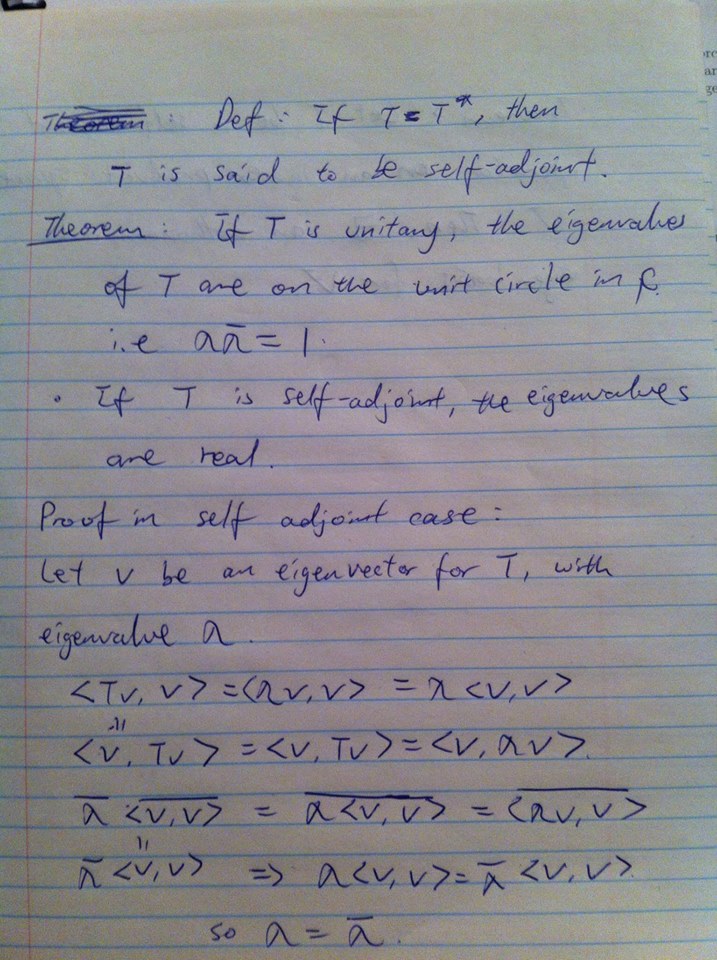 Theorem: Def: If T = T*, then
T is said to be self-adjoint.
Theorem: If T is unitary, the eigenvalues
of T are on the unit circle in ℂ
i.e λλ̅ = 1.
• If T is self-adjoint, the eigenvalues
are real.
Proof in self adjoint case:
Let v be an eigenvector for T, with
eigenvalue λ.
<Tv, v> = <λv, v> = λ <v, v>
=
<v, Tv> = <v, Tv> = <v, λv>.
λ̅ <v, v>̅ = \overline{λ<v, v>} = \overline{<λv, v>}
=
λ̅ <v, v> => λ<v, v> = λ̅ <v, v>
so λ = λ̅.